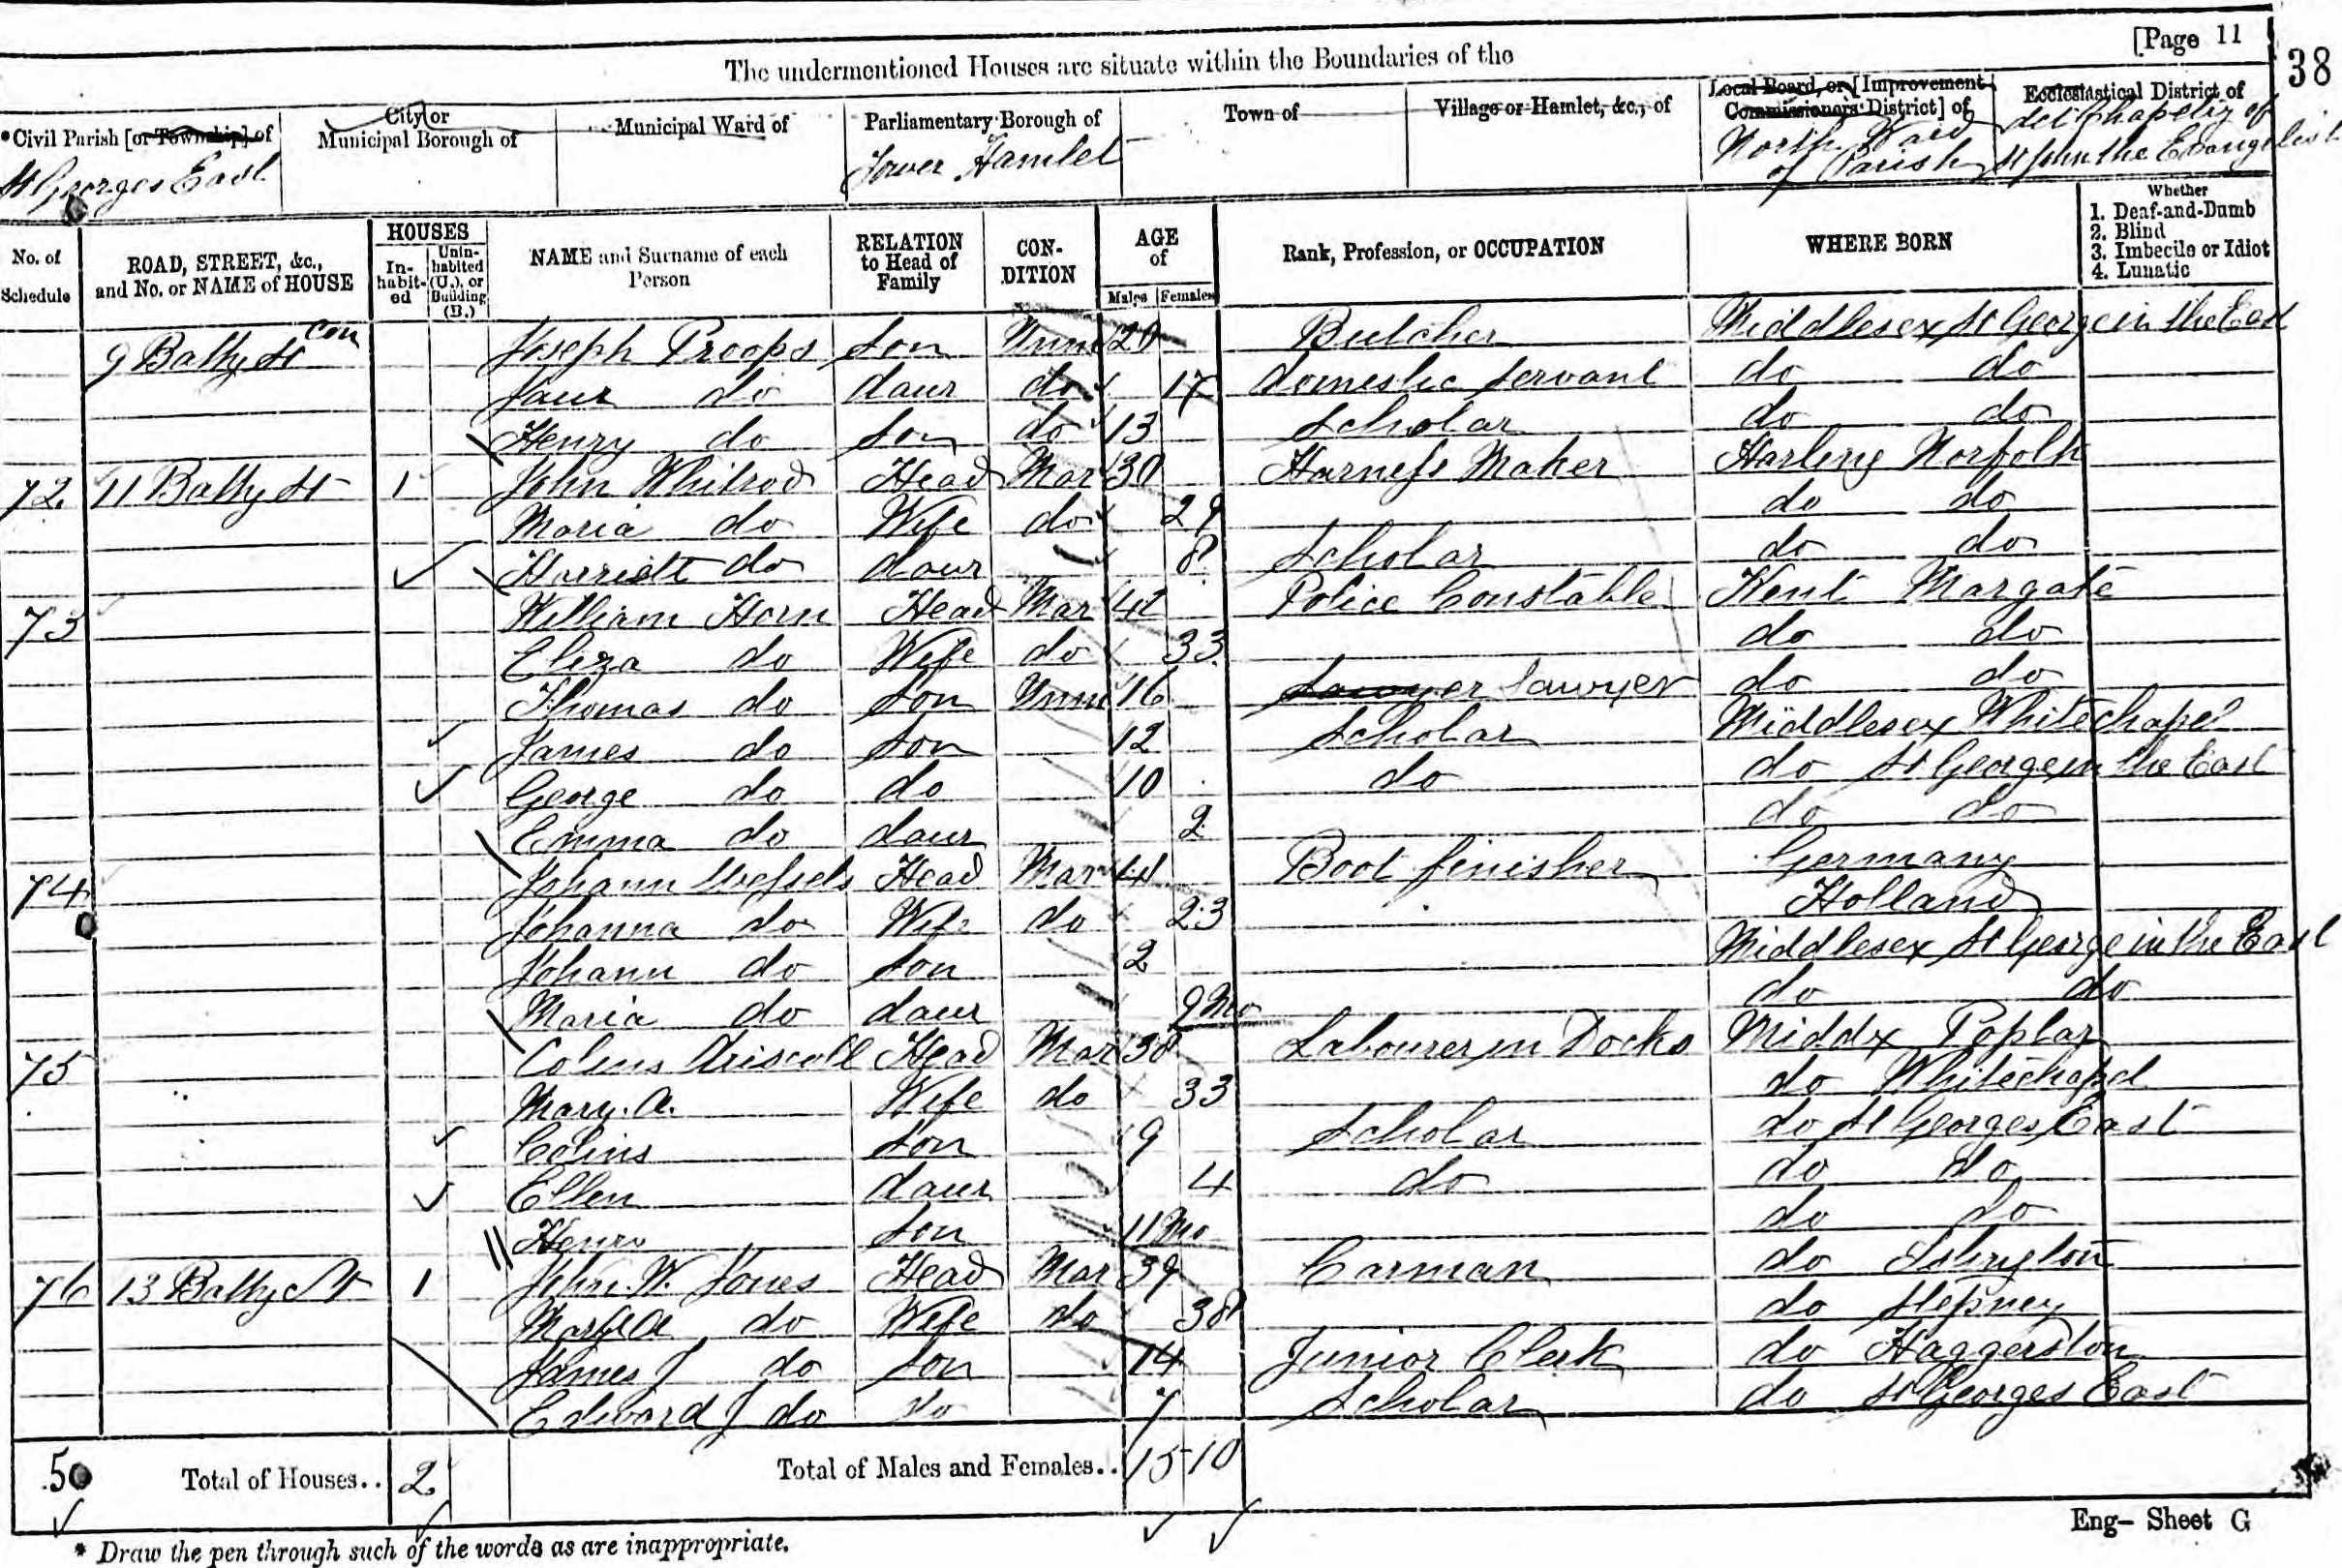 [Page 11
38
The undermentioned Houses are situate within the Boundaries of the
*Civil Parish [or Township] of
St Georges East
City or Municipal Borough of
Municipal Ward of
Parliamentary Borough of
Tower Hamlet
Town of
Village or Hamlet, &c., of
Local Board, or [Improvement Commissioners District] of
North Ward of Parish
Ecclesiastical District of
St John the Evangelist
No. of Schedule
ROAD, STREET, &c., and No. or NAME of HOUSE
HOUSES
In-habit-ed
Unin-habited (U.), or Building (B.)
NAME and Surname of each Person
RELATION to Head of Family
CON-DITION
AGE of
Males Females
Rank, Profession, or OCCUPATION
WHERE BORN
Whether
1. Deaf-and-Dumb
2. Blind
3. Imbecile or Idiot
4. Lunatic
9 Batty St Con Joseph Proops Son Unm 20 Butcher Middlesex St George in the East
do daur do 17 domestic Servant do do
Henry do Son do 13 Scholar do do
72 11 Batty St 1 John Whitrod Head Mar 30 Harness Maker Harling Norfolk
Maria do Wife do 29 do do
Harriett do daur 8 Scholar do do
73 William Horn Head Mar Police Constable Kent Margate
Eliza do Wife do 33 do do
Thomas do Son Unm 16 Sawyer Sawyer do do
James do Son 12 Scholar Middlesex Whitechapel
George do do 10 do do St George in the East
Emma do daur 2 do do
74 Johann Wessels Head Mar Boot finisher Germany
Johanna do Wife do 23 Holland
Johann do Son 2 Middlesex St George in the East
Maria do daur 9 Mo do do
75 Colins Driscoll Head Mar 38 Labourer in Docks Middx Poplar
Mary. A. Wife do 33 do Whitechapel
Colins Son 9 Scholar do St Georges East
Ellen daur 4 do do do
Henry Son 11 Mo do do
76 13 Batty St 1 John. W. Jones Head Mar 39 Carman do Islington
do Wife do 38 do Stepney
James J do Son 14 Junior Clerk do Haggerston
Edward J do do 7 Scholar do St Georges East
50 Total of Houses.. 2 Total of Males and Females.. 15 10
Eng- Sheet G
* Draw the pen through such of the words as are inappropriate.